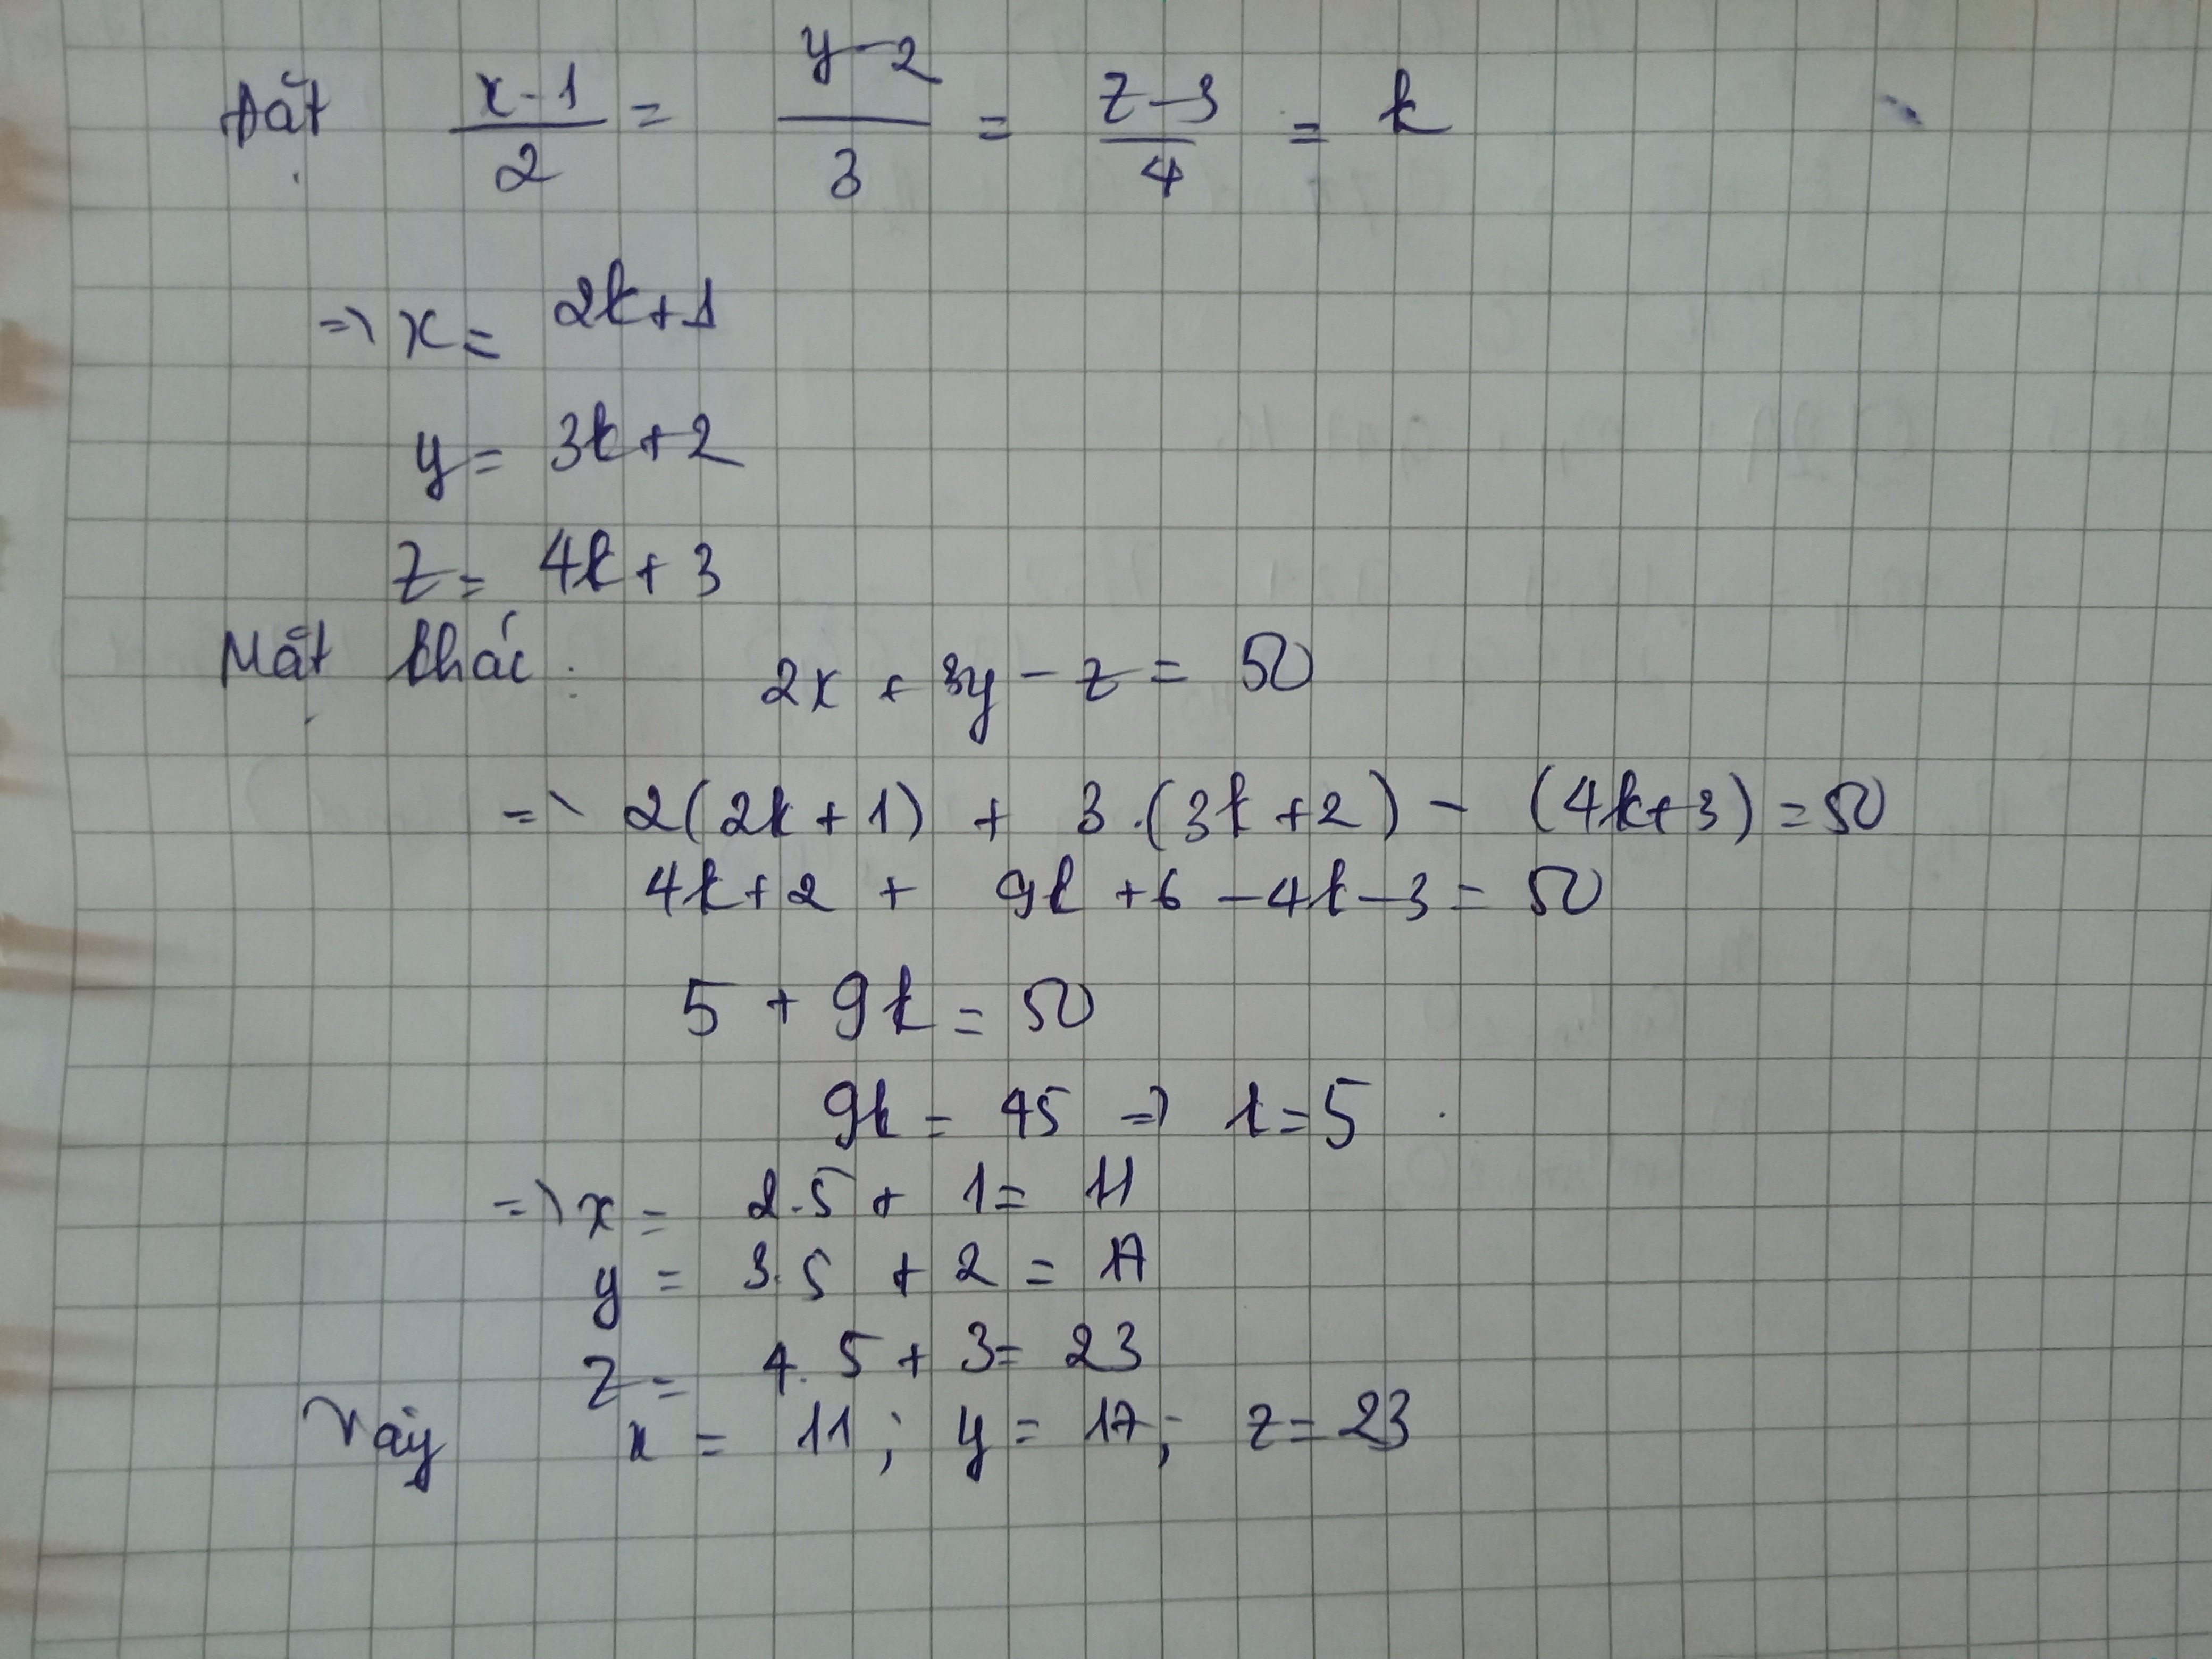 Đặt (x-1)/2 = (y-2)/3 = (z-3)/4 = k
=> x = 2k+1
y = 3k+2
z = 4k+3
Mặt khác: 2x + 3y - z = 50
=> 2(2k+1) + 3.(3k+2) - (4k+3) = 50
4k+2 + 9k+6 -4k-3 = 50
5 + 9k = 50
9k = 45 => k=5
=> x = 2.5 + 1 = 11
y = 3.5 + 2 = 17
z = 4.5 + 3 = 23
Vậy x = 11; y = 17; z = 23